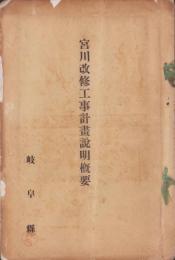 宮川改修工事計畫說明概要
岐阜縣